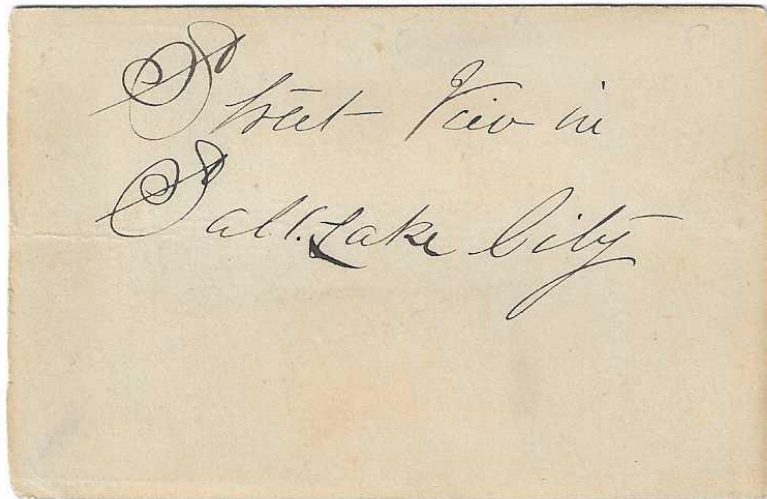 Street View in
Salt Lake City